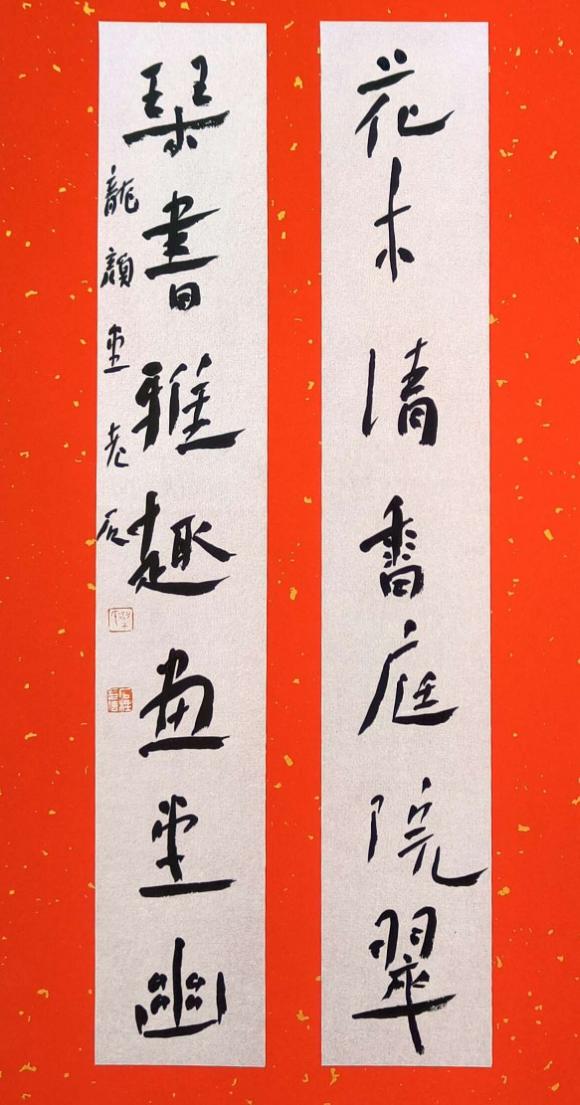 花木清香庭院翠
琴書雅趣畫堂幽
龍顏堂老石